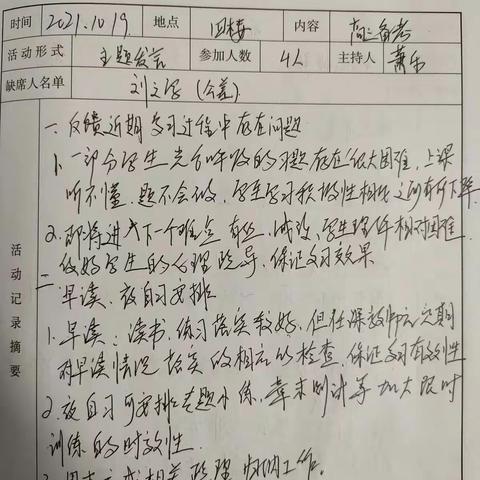 时间 2021.10.19 地点 四楼 内容 高三备考
活动形式 主题发言 参加人数 4人 主持人 萧乐
缺席人名单 刘文学(公差)
活动记录摘要
一、反馈近期复习过程中存在问题
1、一部分学生完合的习题存在很大困难,上课
听不懂,题不会做,学生学习积极性相比之前有所下降
2、即将进入下一个难点 有丝、减数,学生理解相对困难
做好学生的心理疏导,保证复习效果
二、早读、夜自习安排
1、早读:读书、练习落实较好,但任课教师应定期
对早读情况落实的相应的检查,保证复习有效性
2、夜自习可安排专题小练,章末测试等加大限时
训练的时效性
相关整理归纳工作。